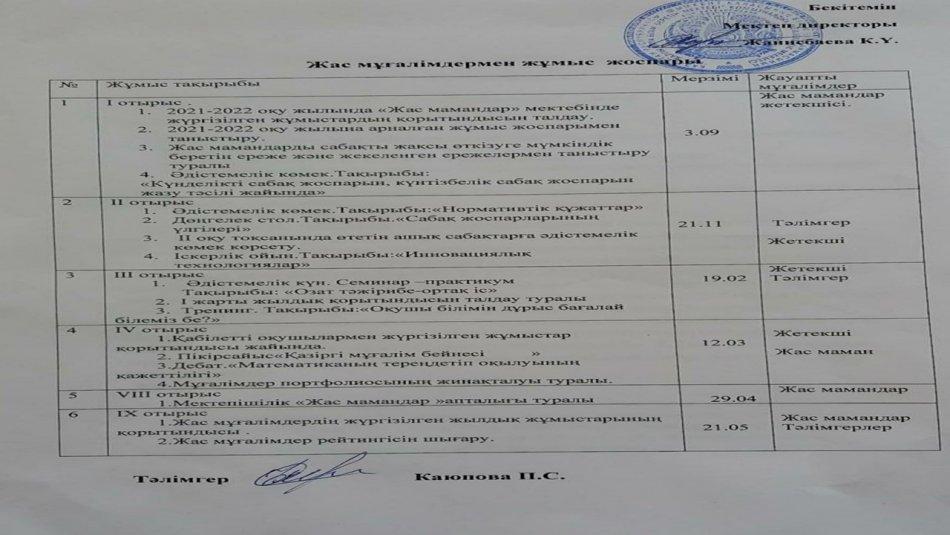 Бекітемін
Мектеп директоры
Жанисбаева К.Ү.
Жас мұғалімдермен жұмыс жоспары
№ Жұмыс тақырыбы Мерзімі Жауапты мұғалімдер
1 І отырыс . Жас мамандар жетекшісі.
1. 2021-2022 оқу жылында «Жас мамандар» мектебінде
жүргізілген жұмыстардың қорытындысын талдау.
2. 2021-2022 оқу жылына арналған жұмыс жоспарымен
таныстыру. 3.09
3. Жас мамандарды сабақты жақсы өткізуге мүмкіндік
беретін ереже және жекеленген ережелермен таныстыру
туралы
4. Әдістемелік көмек.Тақырыбы:
«Күнделікті сабақ жоспарын, күнтізбелік сабақ жоспарын
жазу тәсілі жайында»
2 ІІ отырыс
1. Әдістемелік көмек.Тақырыбы:«Нормативтік құжаттар»
2. Дөңгелек стол.Тақырыбы.«Сабақ жоспарларының 21.11 Тәлімгер
үлгілері»
3. ІІ оқу тоқсанында өтетін ашық сабақтарға әдістемелік Жетекші
көмек көрсету.
4. Іскерлік ойын.Тақырыбы:«Инновациялық
технологиялар»
3 ІІІ отырыс 19.02 Жетекші
1. Әдістемелік күн. Семинар –практикум Тәлімгер
Тақырыбы: «Озат тәжірибе-ортақ іс»
2. І жарты жылдық қорытындысын талдау туралы
3. Тренинг. Тақырыбы:«Оқушы білімін дұрыс бағалай
білеміз бе?»
4 IV отырыс
1.Қабілетті оқушылармен жүргізілген жұмыстар Жетекші
қорытындысы жайында. 12.03
2. Пікірсайыс«Қазіргі мұғалім бейнесі » Жас маман
3.Дебат.«Математиканың тереңдетіп оқылуының
қажеттілігі»
4.Мұғалімдер портфолиосының жинақталуы туралы.
5 VІІІ отырыс Жас мамандар
1.Мектепішілік «Жас мамандар »апталығы туралы 29.04
6 ІХ отырыс
1.Жас мұғалімдердің жүргізілген жылдық жұмыстарының 21.05 Жас мамандар
қорытындысы . Тәлімгерлер
2.Жас мұғалімдер рейтингісін шығару.
Тәлімгер Каюпова П.С.